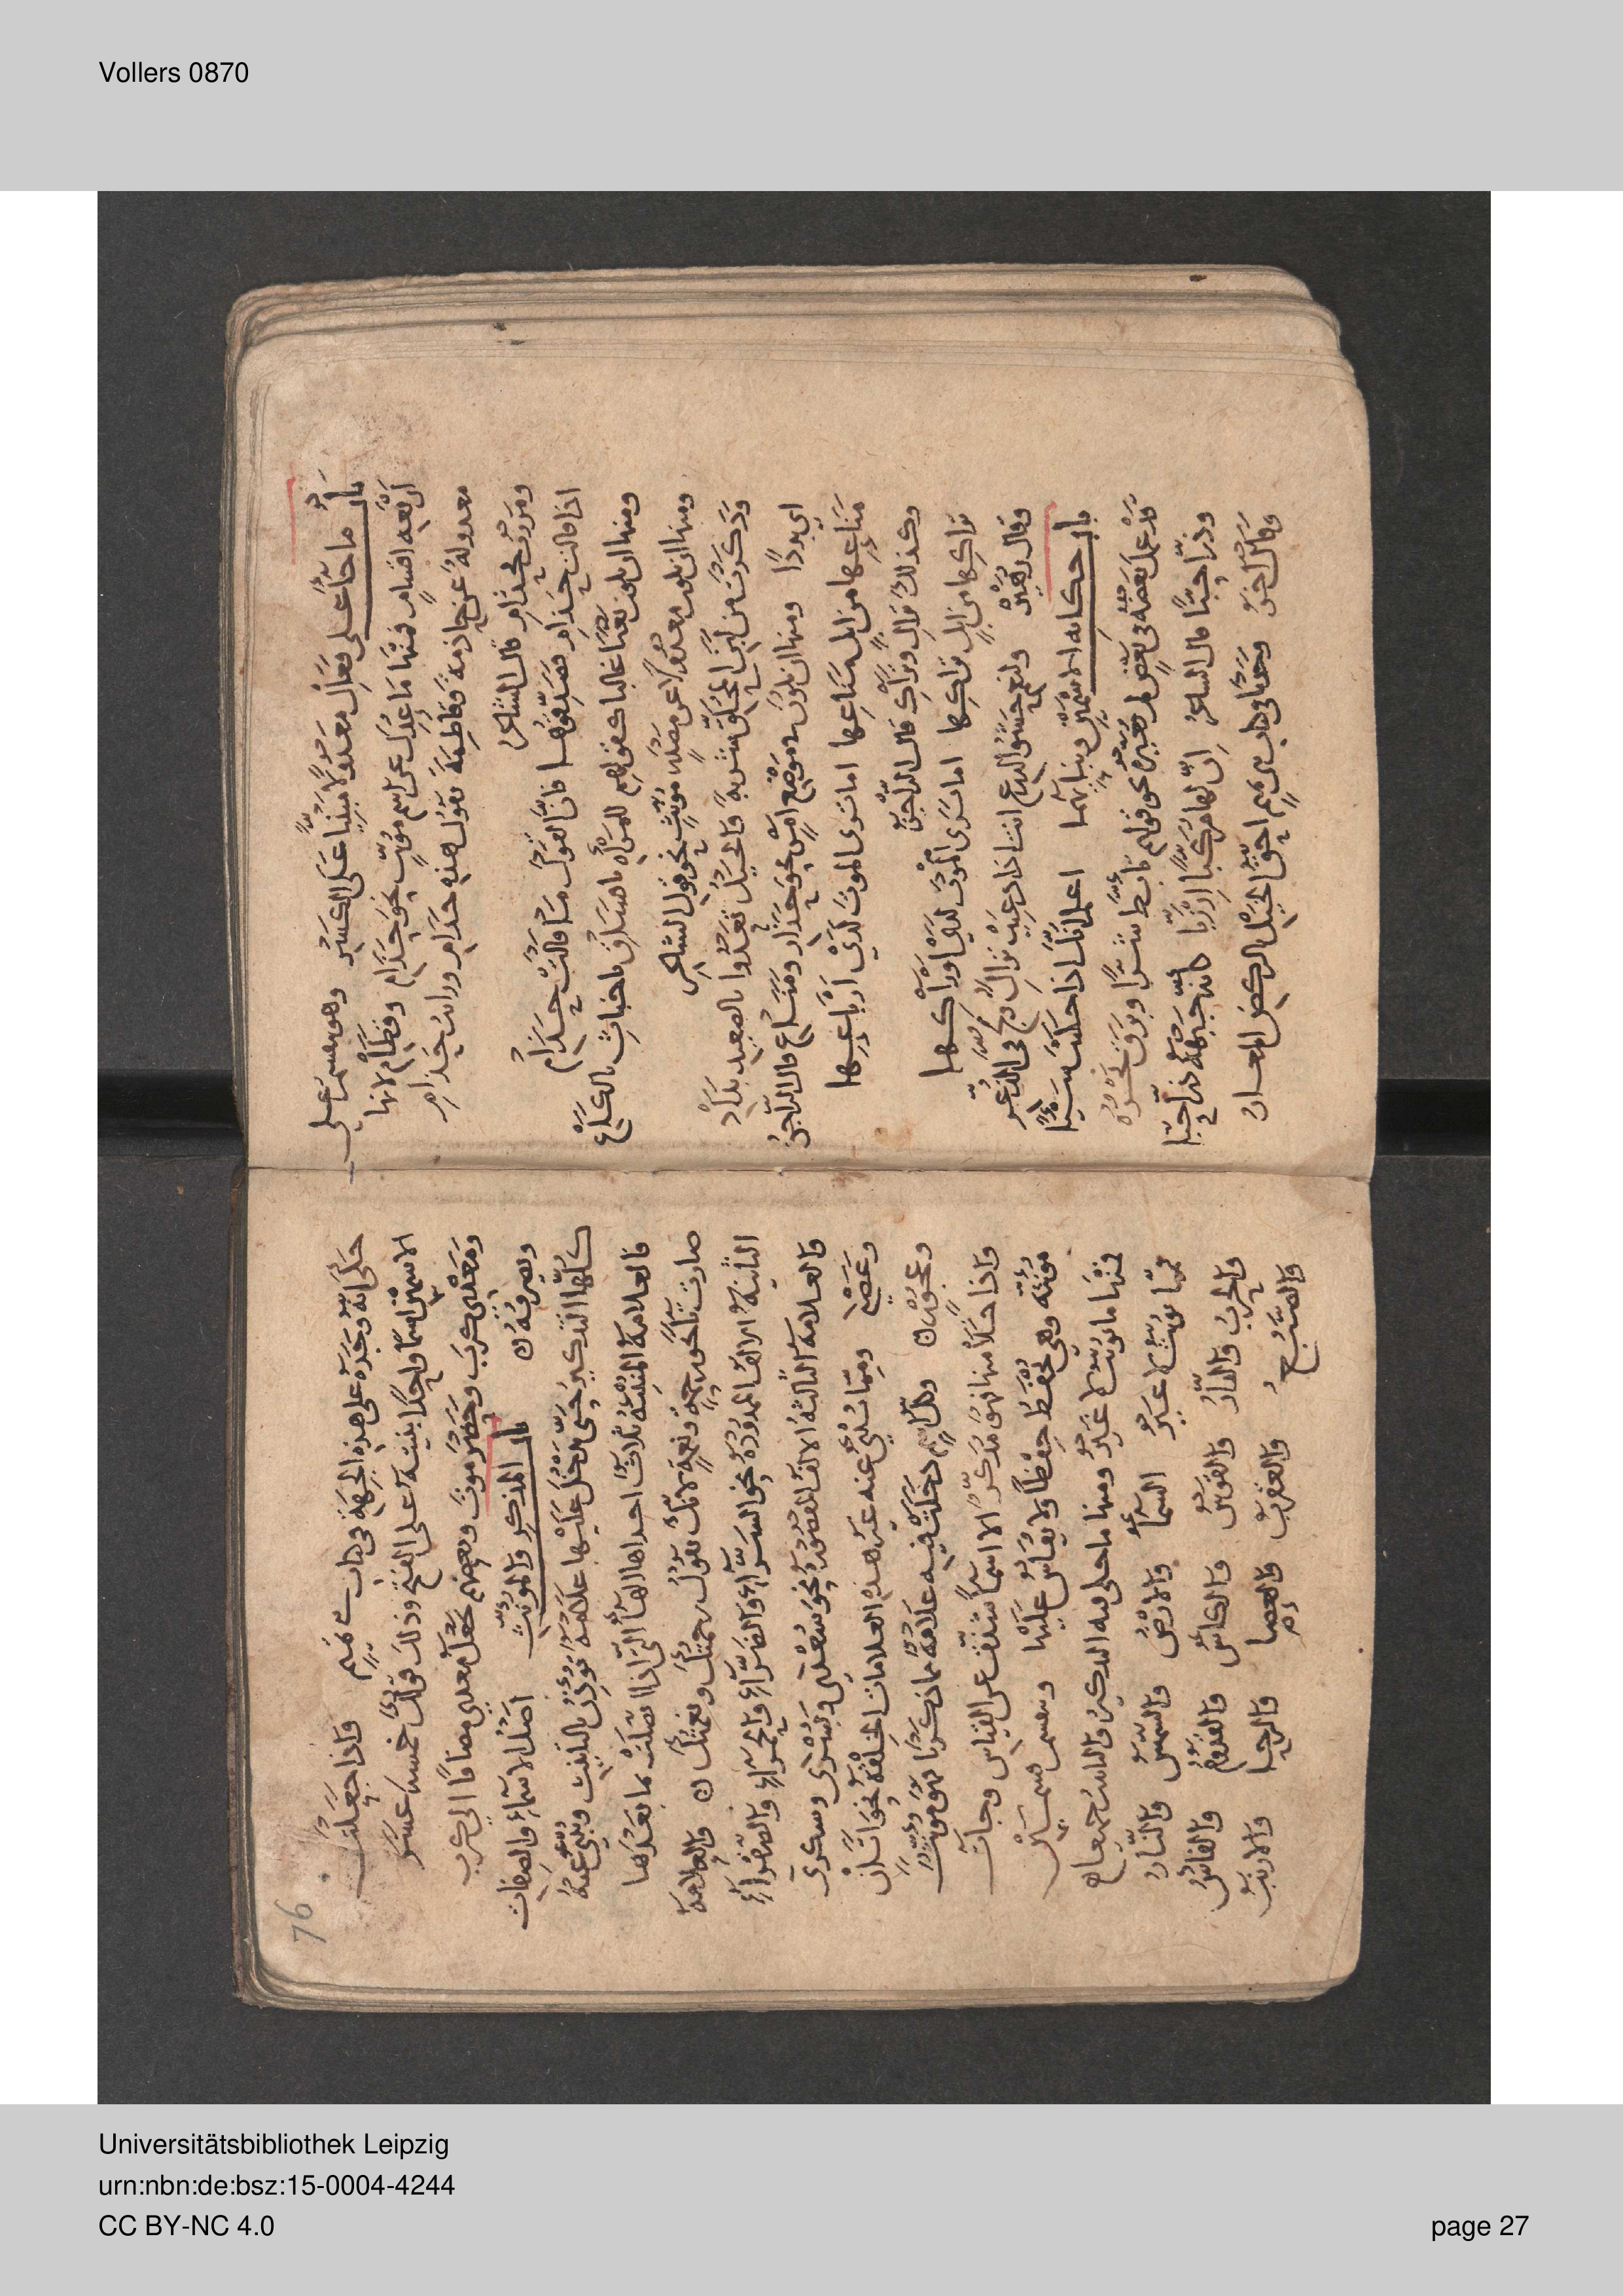 Vollers 0870
باب ما جاء على فَعَالِ معدولًا مبنيا على الكسر وهو ينقسم على
أربعة اقسام فمنها ما عدل عن اسم مؤنث نحو حذام وقطام لانها
معدولة عن حاذمة وقاطمة تقول هذه حذام ورايت حذام
ومررت بحذام قال الشاعر
اذا قالت حذام فصدقوها فان القول ما قالت حذام
ومنها ان يكون نعتا غالبا كقولهم للمرأة يا فساق يا خباث يا لكاع
ومنها ان يكون معدولا عن مصدر مؤنث نحو قول الشاعر
وذكرت من لبن المحلق شربة والخيل تعدوا بالصعيد بداد
اي بددًا ومنها ان يكون موضع امر نحو حذار ومناع قال الراجز
مناعها من ابل مناعها اما ترى الموت لدى ارباعها
وكذلك نزال وتراك قال الراجز
تراكها من ابل تراكها اما ترى الموت لدى اوراكها
وقال زهير ولنعم حشو الدرع انت اذا دعيت نزال ولج في الذعر
باب حكاية الاسمين وبنائهما اعلم انك اذا حكيت شيئا
قد عمل بعضه في بعض لم تغيره نحو قولهم تأبط شرا وبرق نحره
وذرا حبا قال الشاعر ان لها مركبا ارزبا كانه جبهة ذرا حبا
وقال اخر وجدنا في كتاب بني تميم احق الخيل بالركض المعار
76
حكى انه وجده على هذه الجهة في كتاب بني تميم واذا جعلت
الاسمين اسما واحدا بنيته على الفتح وذلك قولك خمسة عشر
ومعدي كرب وحضر موت وبعضهم يجعل معدي مضافا الى كرب
ويصرفه باب المذكر والمؤنث اصل الاسماء والصفات
كلها التذكير حتى تدخل عليها علامة تؤذن بالتانيث وتنبئ عنه
فالعلامة المنبئة ثلاث احداها الهاء التي اذا اتصلت بما بعدها
صارت تاء نحو رحمة ونعمة لانك تقول رحمتك ونعمتك والعلامة
الثانية الالف الممدودة نحو السراء والضراء والحمراء والصفراء
والعلامة الثالثة الالف المقصورة نحو سعدى وبشرى وسكرى
وغضبى ومما تنبئ عنه غير هذه العلامات الخلقة نحو اتان
وعجوز وكل اسم دخلت فيه علامة مما ذكرنا فهو مؤنث
واذا خلا منها فهو مذكر الا اسماء شذت عن القياس وجاءت
مؤنثة وهي تحفظ حفظا ولا يقاس عليها وتنقسم قسمين
فمنها ما يؤنث لا غير ومنها ما جاء فيه التذكير والتانيث جميعا
فمما يؤنث لا غير السماء والارض والشمس والنار
والحرب والدار والقوس والكاس والقدوم والفاس
والضبع والعقرب والعصا والرحا والارنب
Universitätsbibliothek Leipzig
urn:nbn:de:bsz:15-0004-4244
CC BY-NC 4.0
page 27